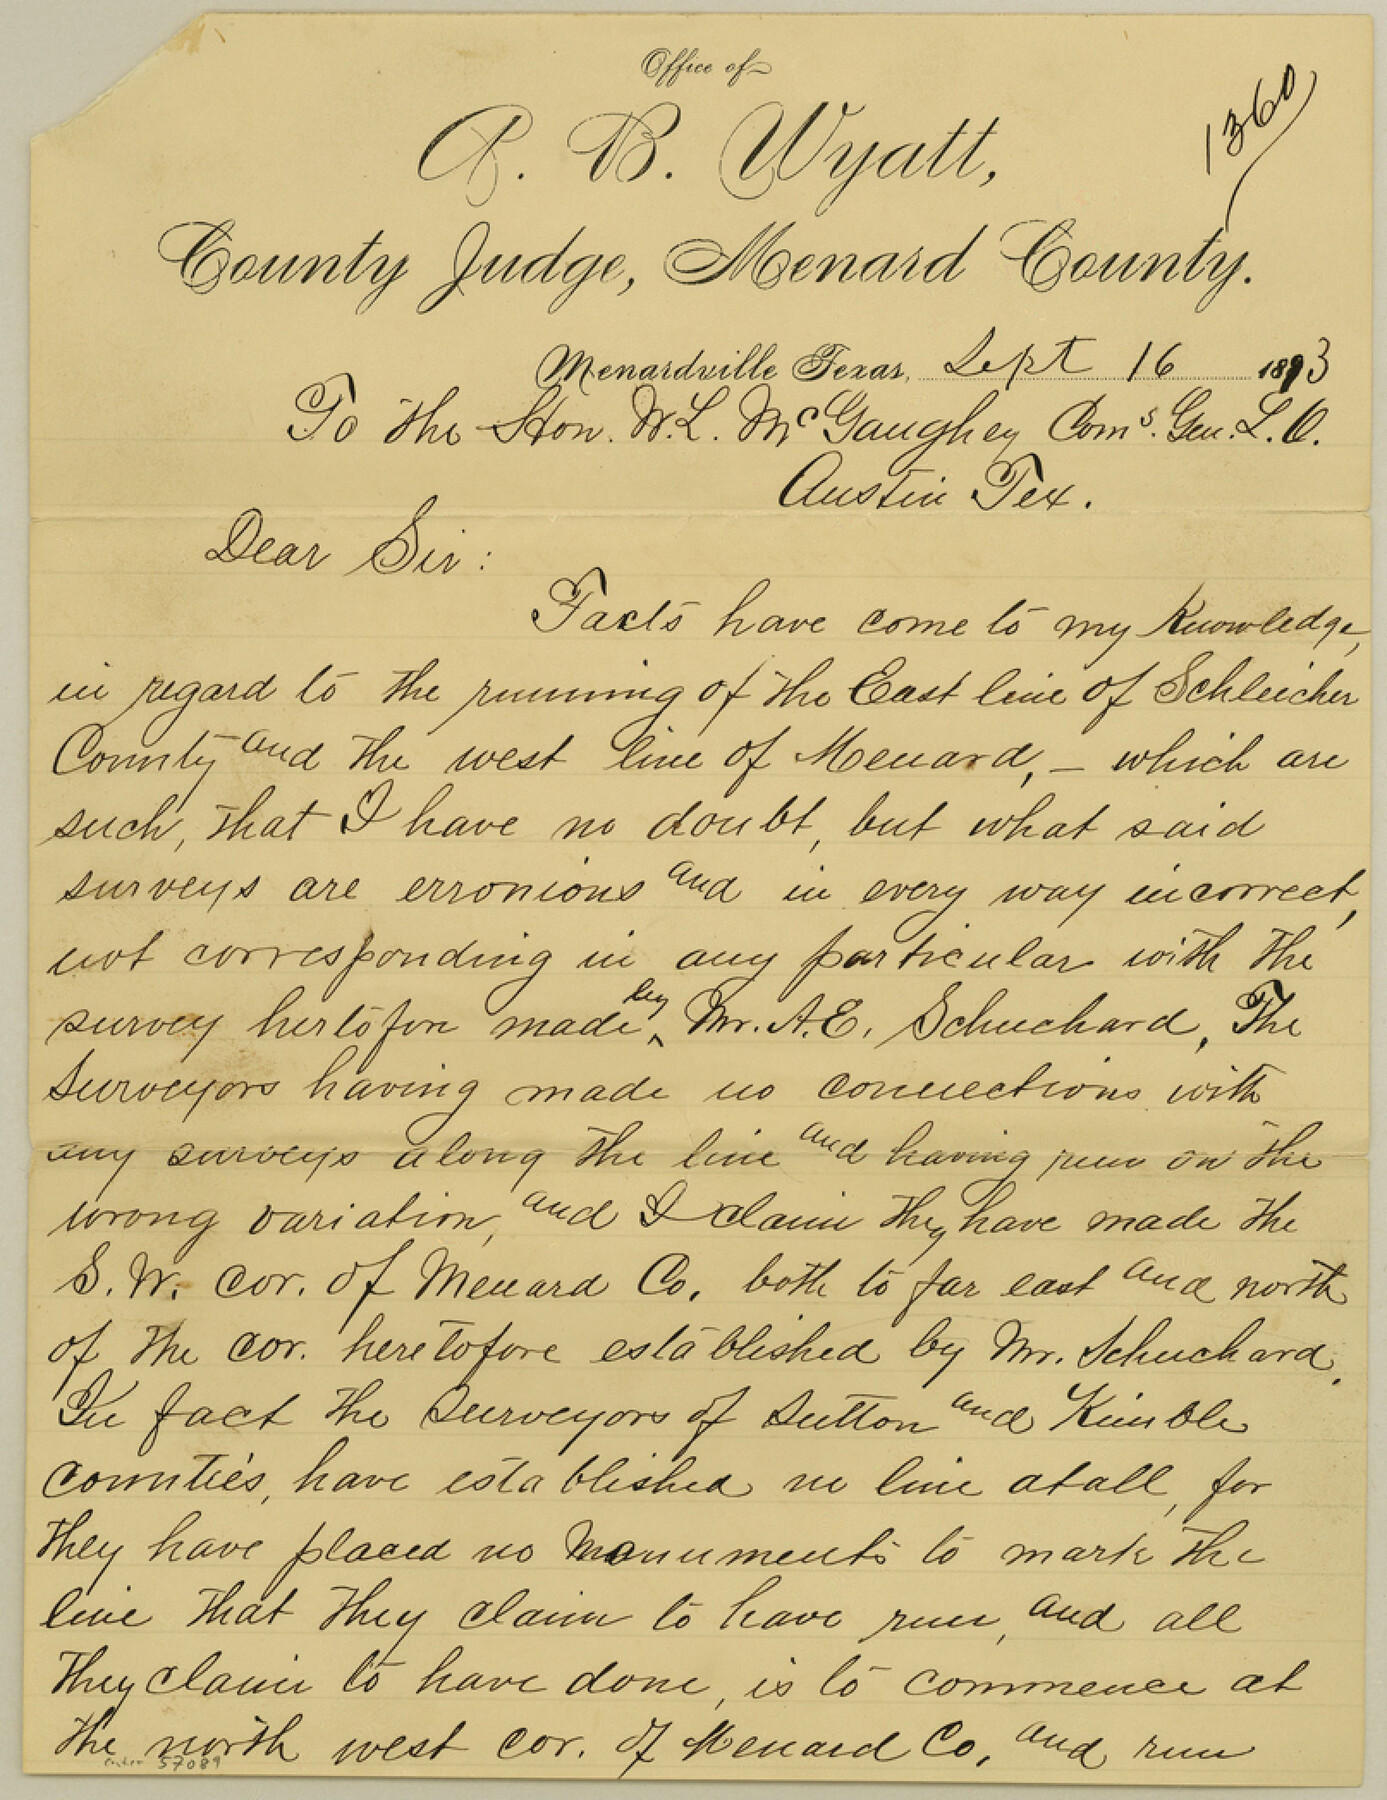 Office of
A. B. Wyatt,
1360
County Judge, Menard County.
Menardville Texas, Sept 16 1893
To the Hon. W. L. McGaughey Coms. Gen. L. O.
Austin Tex.
Dear Sir:
Facts have come to my Knowledge,
in regard to the running of the East line of Schleicher
County and the west line of Menard, — which are
such, that I have no doubt, but what said
surveys are erronious and in every way incorrect,
not corresponding in any particular with the
survey hertofore made by Mr. A. E. Schuchard, The
Surveyors having made no connections with
any surveys along the line and having run on the
wrong variation, and I claim they have made the
S. W. cor. of Menard Co. both to far east and north
of the cor. heretofore established by Mr. Schuchard.
In fact the Surveyors of Sutton and Kimble
counties, have established no line atall, for
they have placed no Monuments to mark the
line that they claim to have run, and all
they claim to have done, is to commence at
the north west cor. of Menard Co. and run
57089